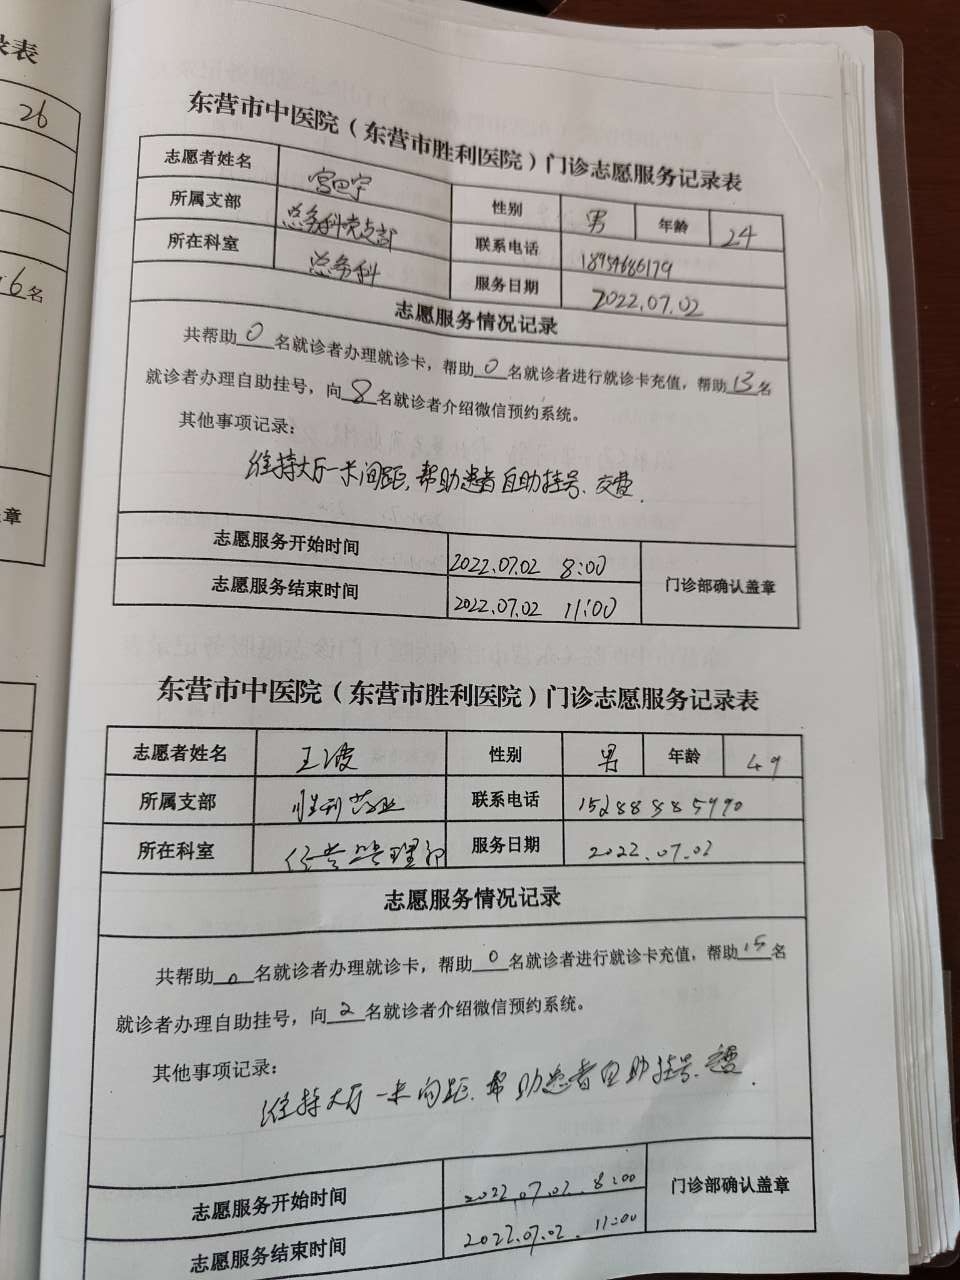 录表
26
6名
章
东营市中医院（东营市胜利医院）门诊志愿服务记录表
志愿者姓名 宫四宇 性别 男 年龄 24
所属支部 总务科党支部 联系电话 18954686179
所在科室 总务科 服务日期 2022.07.02
志愿服务情况记录
共帮助0名就诊者办理就诊卡，帮助0名就诊者进行就诊卡充值，帮助13名
就诊者办理自助挂号，向8名就诊者介绍微信预约系统。
其他事项记录：
维持大厅一米间距，帮助患者自助挂号、交费.
志愿服务开始时间 2022.07.02 8:00
门诊部确认盖章
志愿服务结束时间 2022.07.02 11:00
东营市中医院（东营市胜利医院）门诊志愿服务记录表
志愿者姓名 王波 性别 男 年龄 49
所属支部 胜利药业 联系电话 15288885990
所在科室 经营管理部 服务日期 2022.07.02
志愿服务情况记录
共帮助0名就诊者办理就诊卡，帮助0名就诊者进行就诊卡充值，帮助15名
就诊者办理自助挂号，向2名就诊者介绍微信预约系统。
其他事项记录：
维持大厅一米间距.帮助患者自助挂号.交费.
志愿服务开始时间 2022.07.02. 8:00
门诊部确认盖章
志愿服务结束时间 2022.07.02 11:00